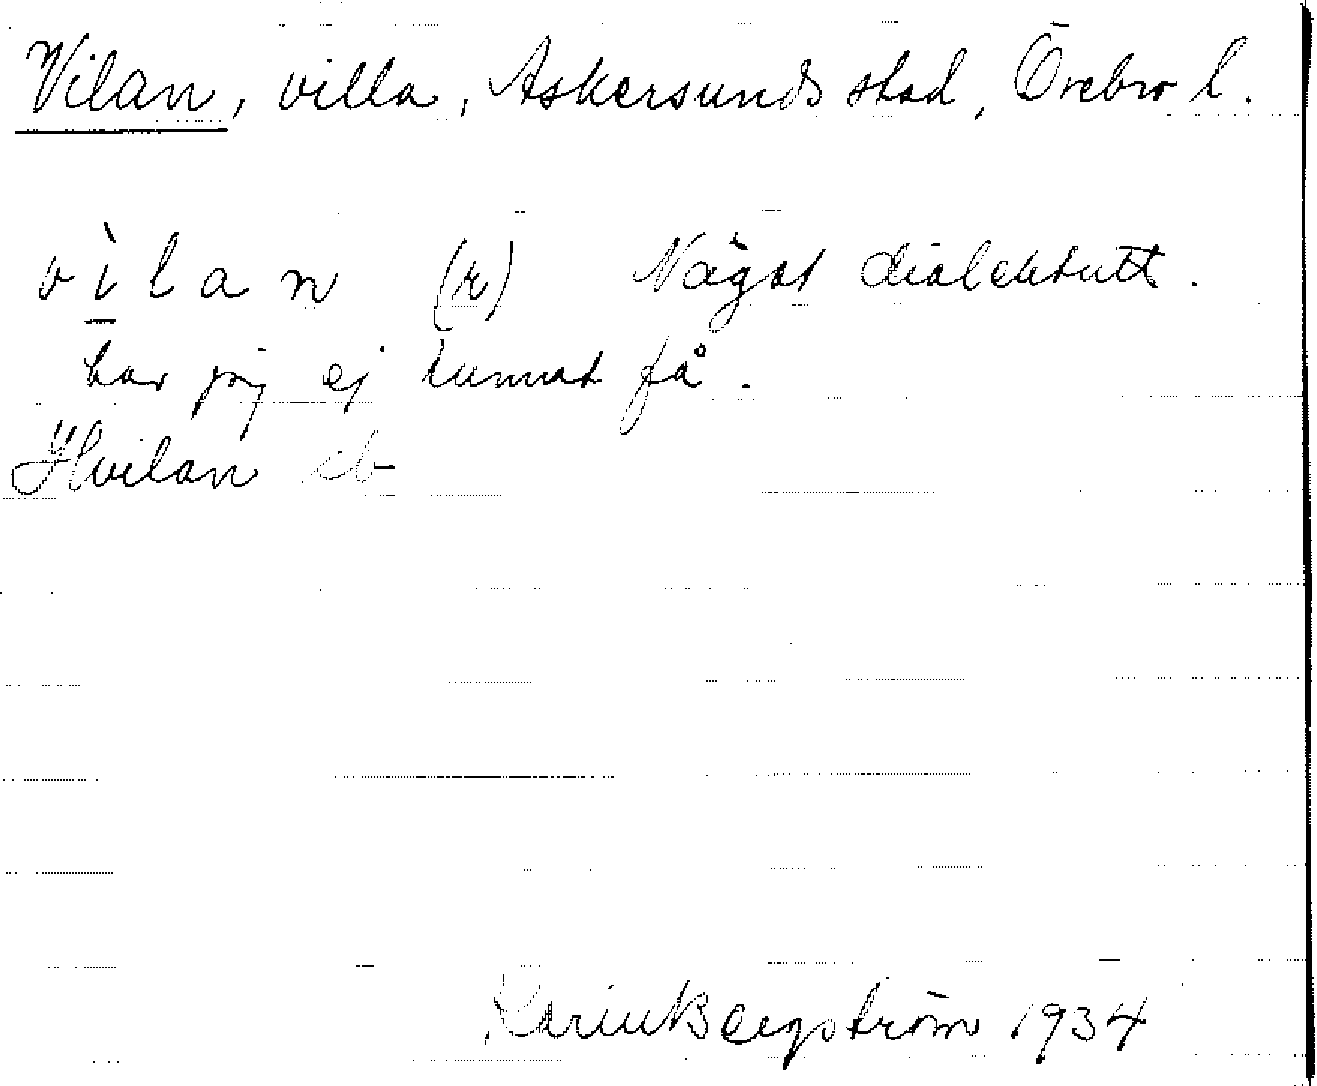 Vilan, villa, Askersunds stad, Örebro l.
vìlan (r) Något dialektutt.
har jag ej kunnat få.
Hvilan
Karin Bergström 1934